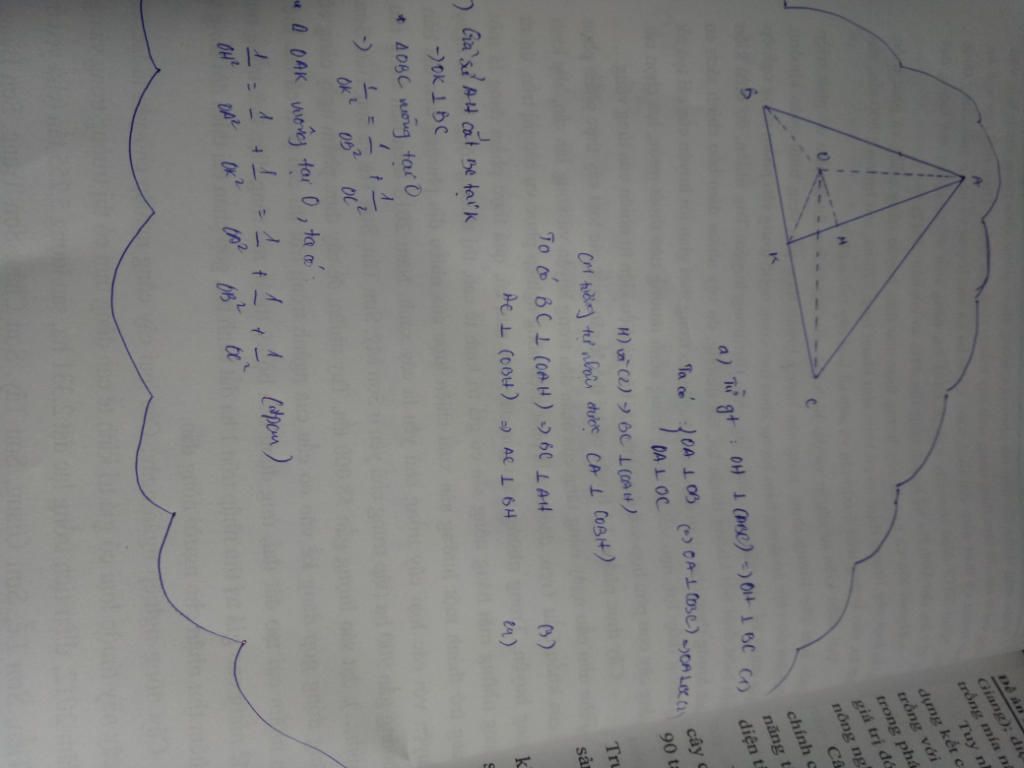 A
B
O
H
K
C
a) Từ gt : OH ⊥ (ABC) => OH ⊥ BC (1)
Ta có : { OA ⊥ OB
OA ⊥ OC <=> OA ⊥ (OBC) => OA ⊥ BC (2)
(1) và (2) => BC ⊥ (OAH)
CM tương tự
được CA ⊥ (OBH)
Ta có BC ⊥ (OAH) => BC ⊥ AH (3)
AC ⊥ (OBH) => AC ⊥ BH (4)
) Giả sử AH cắt BC tại K
-> OK ⊥ BC
* ΔOBC vuông tại O
-> 1/OK² = 1/OB² + 1/OC²
Δ OAK vuông tại O, ta có
1/OH² = 1/OA² + 1/OK² = 1/OA² + 1/OB² + 1/OC² (đpcm)
Giang), đi
trồng mía n
Tuy nh
dụng kết c
trồng với
trong phá
giá trị đó
nông ng
Câ
chính c
năng t
điện t
cây c
90 t
Tru
sản